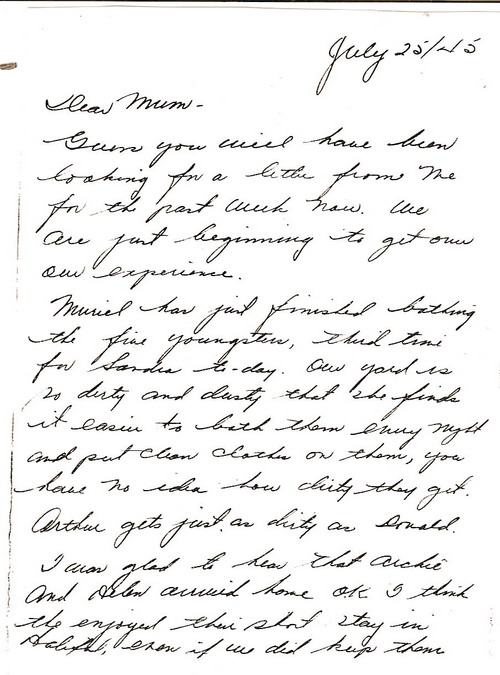 July 25/45
Dear Mum-
Guess you will have been
looking for a letter from me
for the past week now. We
are just beginning to get over
our experience.
Muriel has just finished bathing
the five youngsters, third time
for Sandra to-day. Our yard is
so dirty and dusty that she finds
it easier to bath them every night
and put clean clothes on them, you
have no idea how dirty they get.
Arthur gets just as dirty as Donald.
I was glad to hear that Archie
and Helen arrived home OK I think
the enjoyed their short stay in
Halifax, even if we did keep them